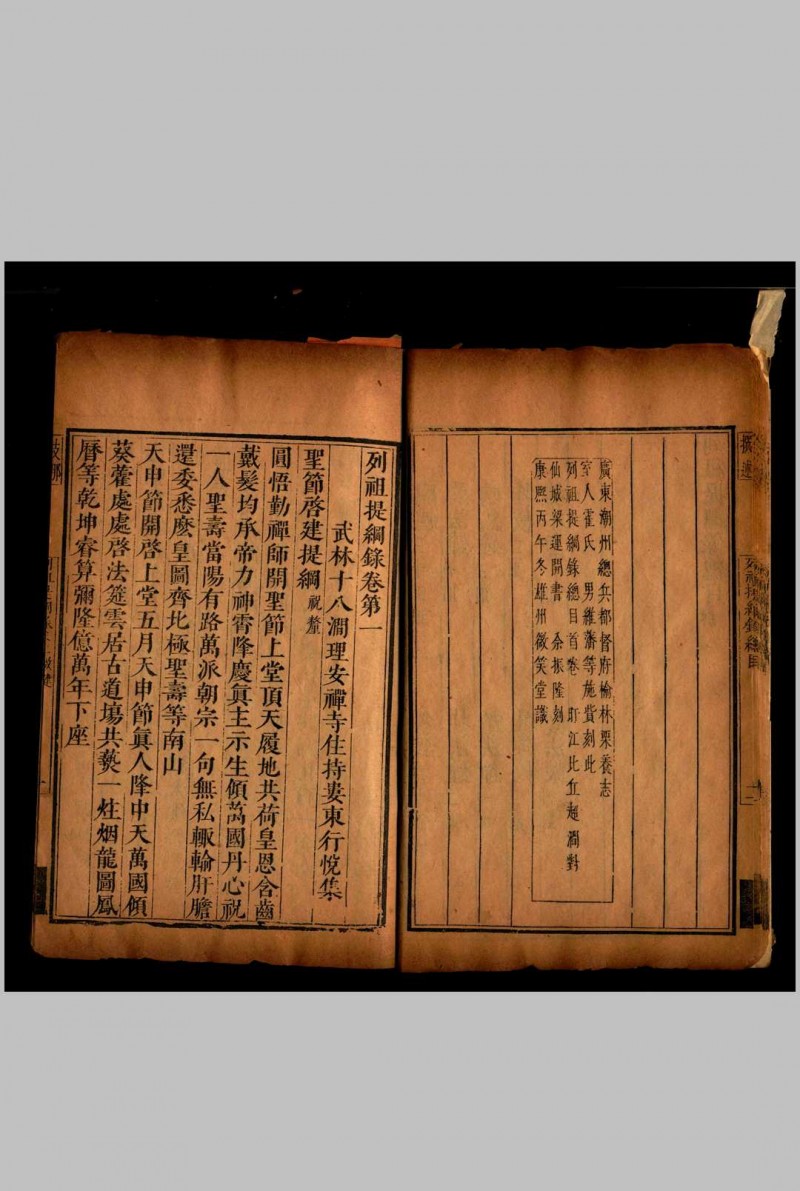 廣東潮州總兵都督府榆林栗養志
室人霍氏　男維藩等施貲刻此
列祖提綱錄總目首卷　盱江比丘超澗對
仙城梁運開書　余振隆刻
康熙丙午冬雄州微笑堂識
撰述
列祖提綱錄總目
列祖提綱錄卷第一
武林十八澗理安禪寺住持婁東行悅集
聖節啓建提綱 祝釐
圓悟勤禪師開聖節上堂頂天履地共荷皇恩含齒
戴髮均承帝力神霄隆慶眞主示生傾萬國丹心祝
一人聖壽當陽有路萬派朝宗一句無私輙輸肝膽
還委悉麽皇圖齊北極聖壽等南山
天申節開啓上堂五月天申節眞人降中天萬國傾
葵藿處處啓法筵雲居古道場共爇一炷烟龍圖鳳
曆等乾坤睿算彌隆億萬年下座